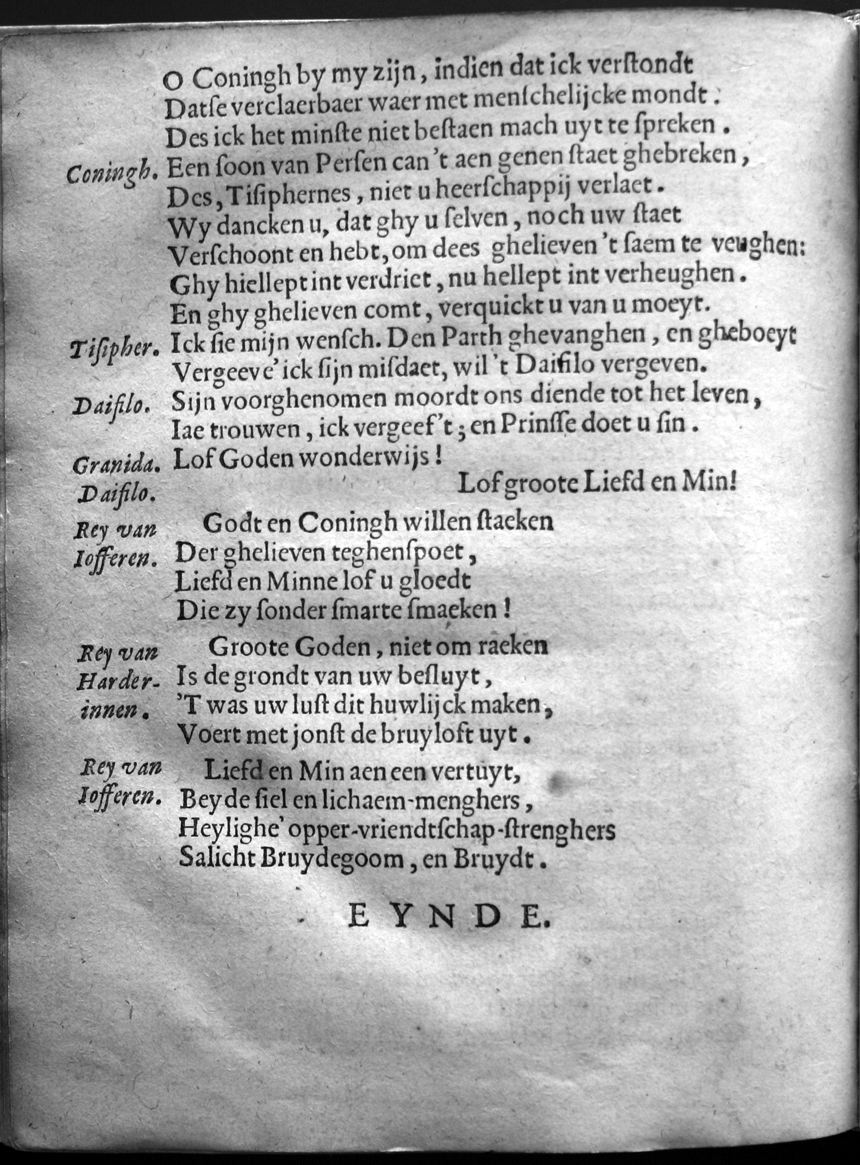 O Coningh by my zijn, indien dat ick verſtondt
Datſe verclaerbaer waer met menſchelijcke mondt:
Des ick het minſte niet beſtaen mach uyt te ſpreken.
Coningh. Een ſoon van Perſen can't aen genen ſtaet ghebreken,
Des, Tiſiphernes, niet u heerſchappij verlaet.
Wy dancken u, dat ghy u ſelven, noch uw ſtaet
Verſchoont en hebt, om dees ghelieven 't ſaem te veughen:
Ghy hiellept int verdriet, nu hellept int verheughen.
En ghy ghelieven comt, verquickt u van u moeyt.
Tiſipher. Ick ſie mijn wenſch. Den Parth ghevanghen, en gheboeyt
Vergeeve' ick ſijn miſdaet, wil 't Daiſilo vergeven.
Daiſilo. Sijn voorghenomen moordt ons diende tot het leven,
Iae trouwen, ick vergeef't; en Prinſſe doet u ſin.
Granida. Lof Goden wonderwijs!
Daiſilo. Lof groote Liefd en Min!
Rey van Godt en Coningh willen ſtaeken
Iofferen. Der ghelieven teghenſpoet,
Liefd en Minne lof u gloedt
Die zy ſonder ſmarte ſmaeken!
Rey van Groote Goden, niet om raeken
Harder- Is de grondt van uw beſluyt,
innen. 'T was uw luſt dit huwlijck maken,
Voert met jonſt de bruyloft uyt.
Rey van Liefd en Min aen een vertuyt,
Iofferen. Beyde ſiel en lichaem-menghers,
Heylighe' opper-vriendtſchap-ſtrenghers
Salicht Bruydegoom, en Bruydt.
EYNDE.